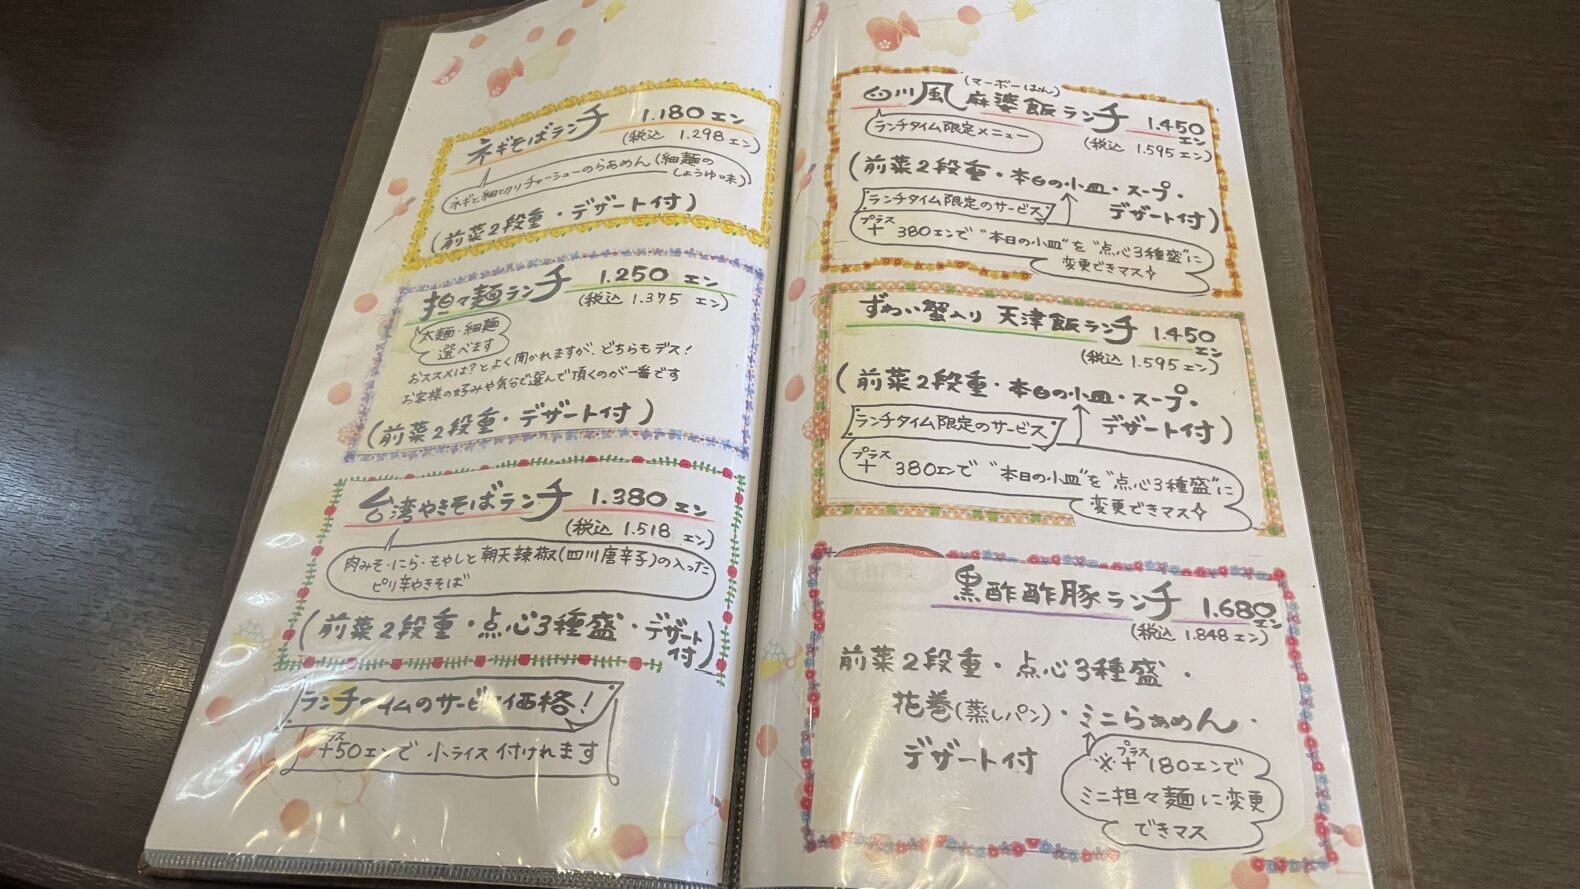 ネギそばランチ 1.180エン
(税込 1.298エン)
ネギと細切りチャーシューのらあめん(細麺の
しょうゆ味)
(前菜2段重・デザート付)
担々麺ランチ 1.250エン
(税込 1.375エン)
太麺・細麺
選べます
おススメは?とよく聞かれますが、どちらもデス!
お客様の好みや気分で選んで頂くのが一番です
(前菜2段重・デザート付)
台湾やきそばランチ 1.380エン
(税込 1.518エン)
肉みそ・にら・もやしと朝天辣椒(四川唐辛子)の入った
ピリ辛やきそば
(前菜2段重・点心3種盛・デザート
付)
ランチタイムのサービス価格!
プラス
+50エンで 小ライス付けれます
(マーボーはん)
四川風麻婆飯ランチ 1.450
エン
(税込 1.595エン)
ランチタイム限定メニュー
(前菜2段重・本日の小皿・スープ・
デザート付)
ランチタイム限定のサービス
プラス
+380エンで"本日の小皿"を"点心3種盛"に
変更できマス
ずわい蟹入り 天津飯ランチ 1.450
エン
(税込 1.595エン)
(前菜2段重・本日の小皿・スープ・
デザート付)
ランチタイム限定のサービス
プラス
+ 380エンで "本日の小皿"を"点心3種盛"に
変更できマス
黒酢酢豚ランチ 1.680
エン
(税込 1.848エン)
前菜2段重・点心3種盛・
花巻(蒸しパン)・ミニらぁめん・
デザート付
プラス
※+180エンで
ミニ担々麺に変更
できマス